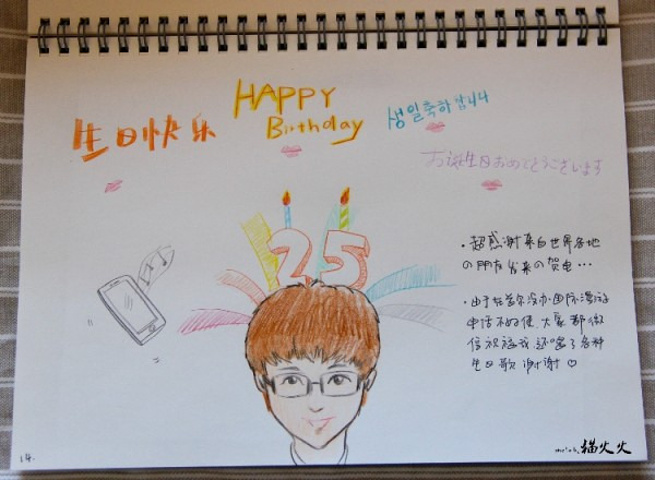 生日快乐
HAPPY
Birthday
생일축하합니다
お誕生日おめでとうございます
25
·超感谢来自世界各地
の朋友发来の贺电…
·由于在首尔没办国际漫游
电话不好使,大家都微
信祝福我,还唱了各种
生日歌,谢谢♡
14.
猫火火